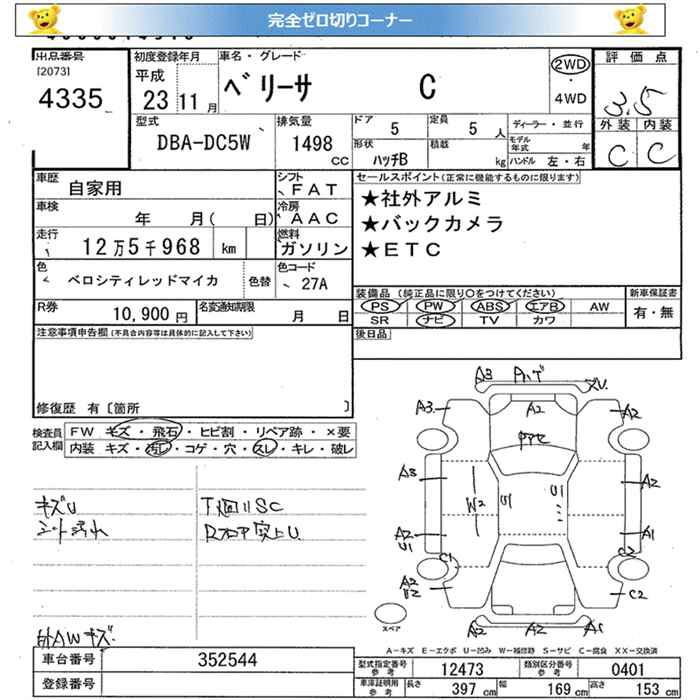 完全ゼロ切りコーナー
出品番号
[2073]
4335
初度登録年月
平成
23 11 月
車名・グレード
ベリーサ C
2WD
・
4WD
評価点
3.5
外装 内装
C C
型式
DBA-DC5W
排気量
1498
cc
ドア
5
定員
5 人
形状
ハッチB
積載
kg
ディーラー・並行
モデル
年式 年
ハンドル 左・右
車歴
自家用
シフト
FAT
車検
年 月( 日)
冷房
AAC
走行
12万5千968 km
燃料
ガソリン
色
ベロシティレッドマイカ
色替
色コード
27A
R券
10,900 円
名変通知期限
月 日
セールスポイント(正常に機能するものに限ります)
★社外アルミ
★バックカメラ
★ETC
装備品(純正品に限り○をつけてください)
PS PW ABS エアB AW
SR ナビ TV カワ
新車保証書
有・無
後日品
注意事項申告欄(不具合内容等は具体的に記入して下さい)
修復歴 有〔箇所 〕
検査員
記入欄
FW キズ・飛石・ヒビ割・リペア跡・×要
内装 キズ・汚レ・コゲ・穴・スレ・キレ・破レ
キズU
シート汚れ
T廻リSC
Rフロア突上U.
外AWキズ.
A3
A2
A2
A3
A2
W2
U1
U1
A3
A2
A2
U1
A1
C1
C2
A2
C2
A2
A2
A1
スペア
A-キズ E-エクボ U-凹み W-補修跡 S-サビ C-腐食 XX-交換済
車台番号
352544
登録番号
型式指定番号
参考
12473
類別区分番号
参考
0401
車庫証明用
参考
長さ
397 cm
幅
169 cm
高さ
153 cm